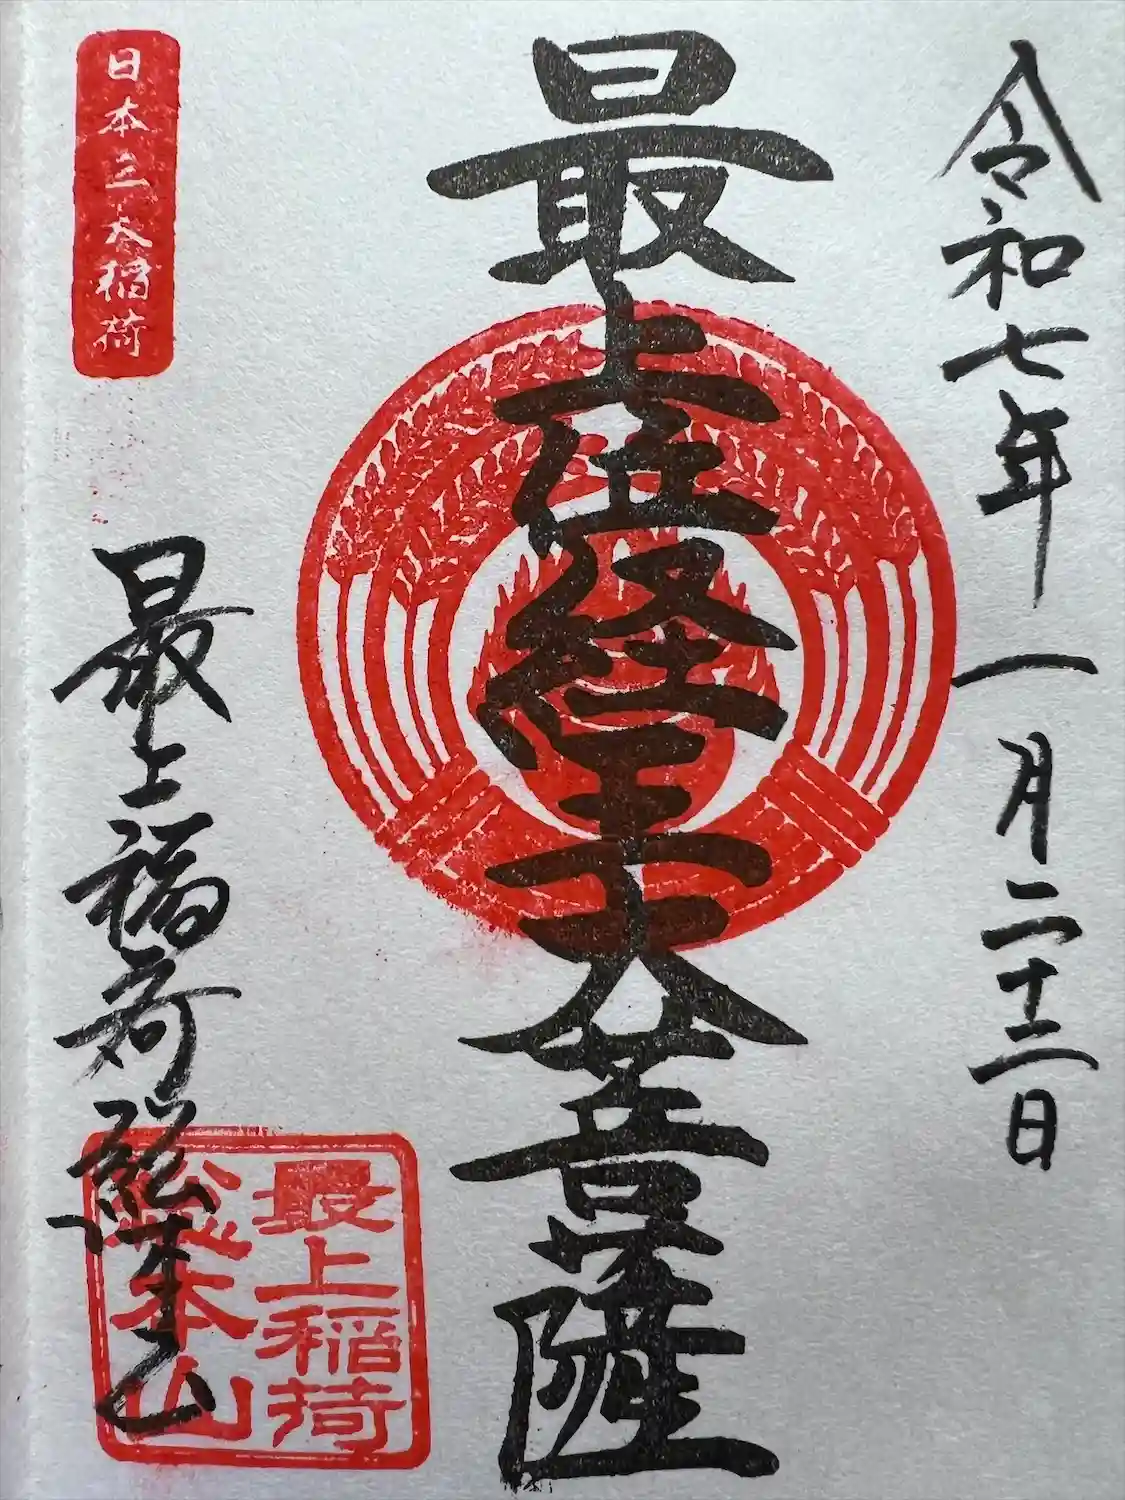 令和七年一月二十三日
最上位経王大菩薩
日本三大稲荷
最上稲荷総本山
最上稲荷
総本山